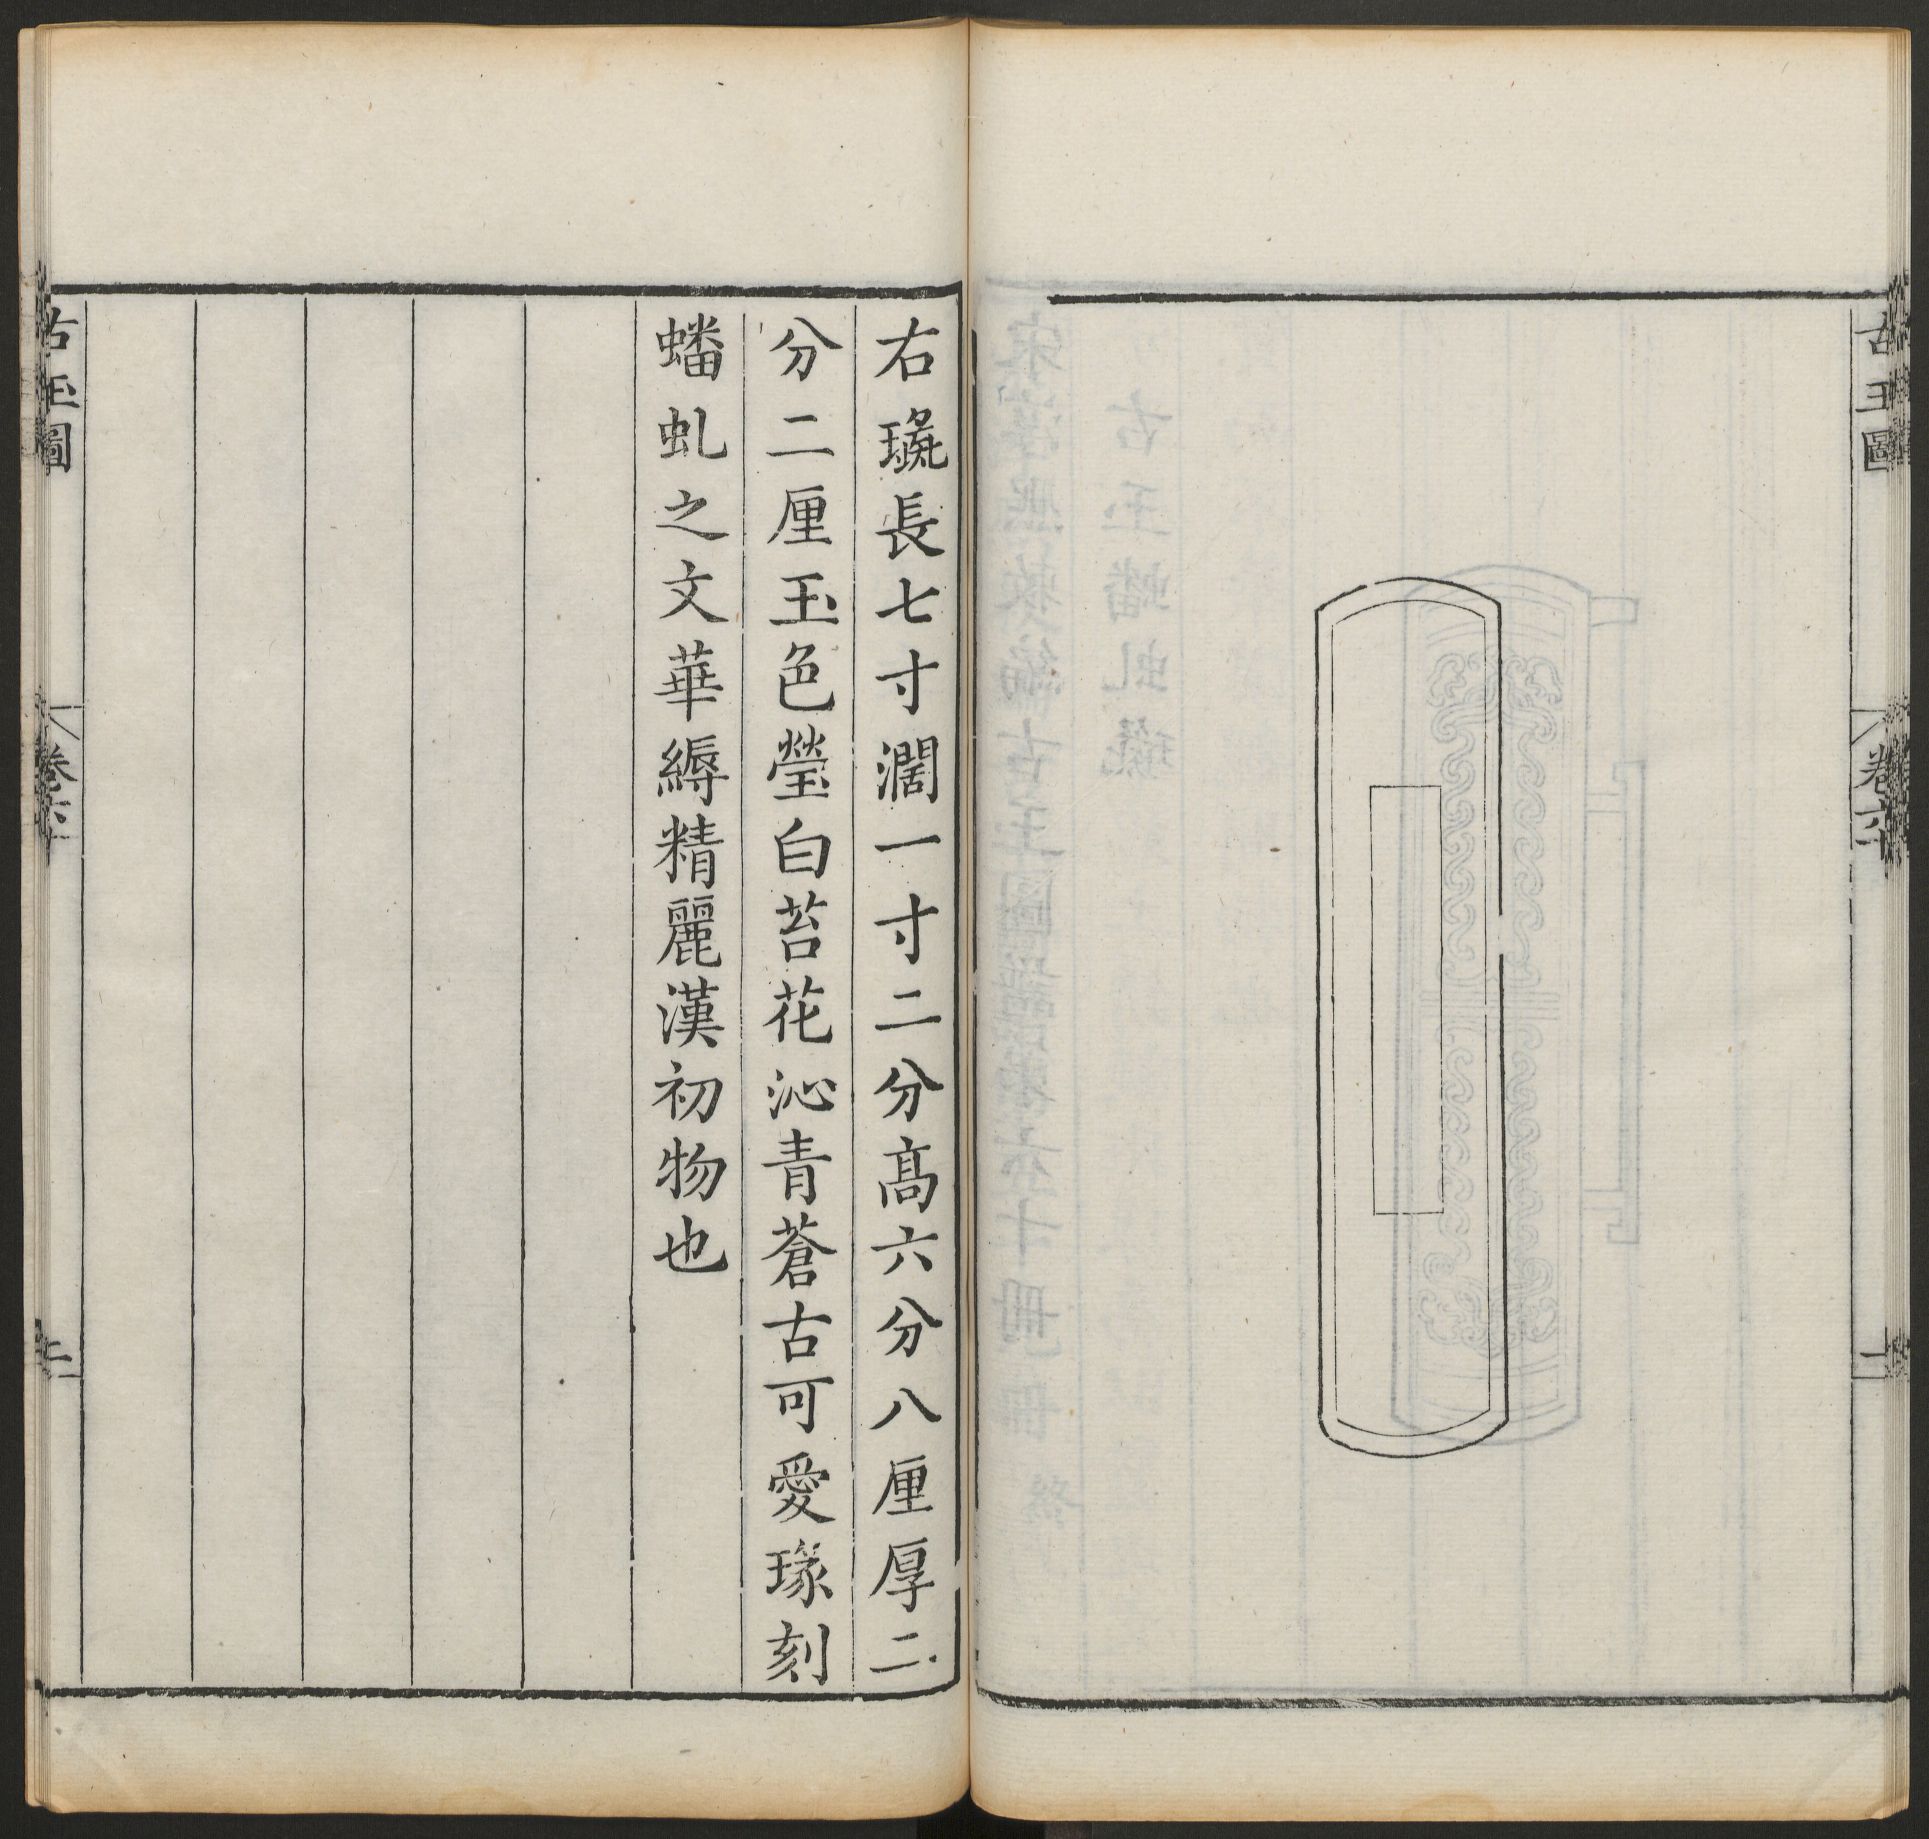 古玉圖
卷六十
一
右璏長七寸濶一寸二分髙六分八厘厚二
分二厘玉色瑩白苔花沁青蒼古可愛瑑刻
蟠虬之文華縟精麗漢初物也
古玉圖
卷六十
二